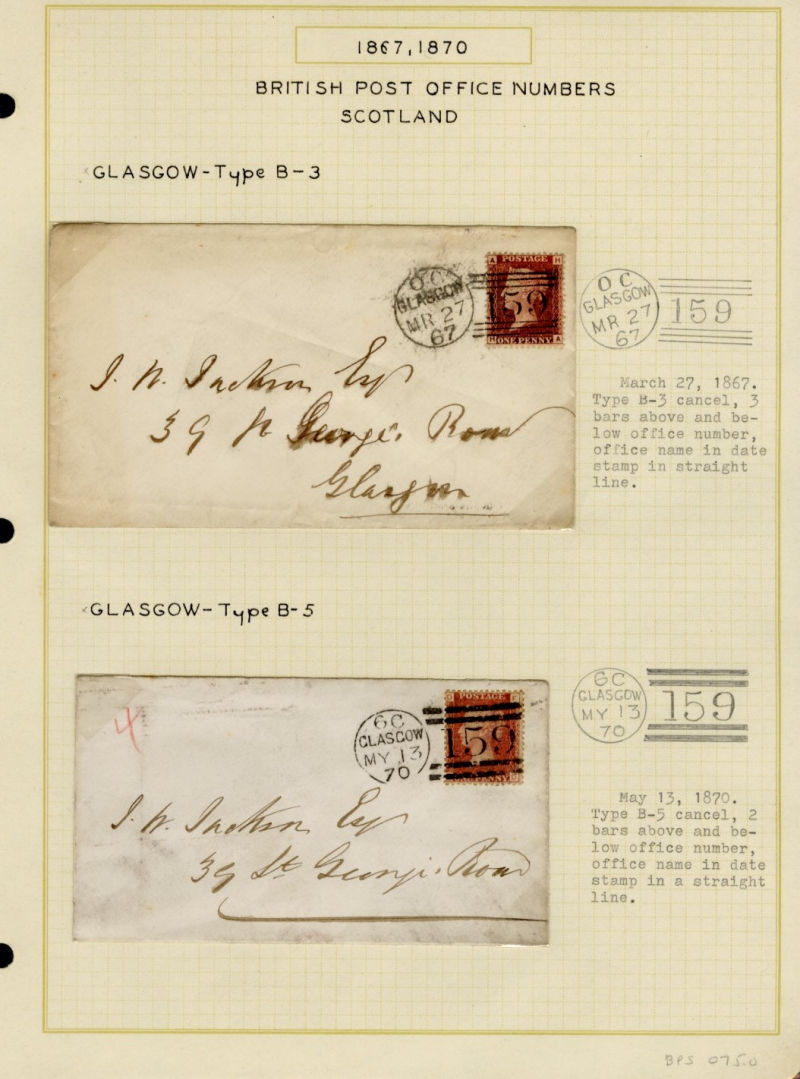 1867, 1870
BRITISH POST OFFICE NUMBERS
SCOTLAND
GLASGOW - Type B-3
OC
GLASGOW
MR 27
67
A POSTAGE H
159
H ONE PENNY A
J. W. Jackson Esq
39 St George's Road
Glasgow
OC
GLASGOW
MR 27
67
159
March 27, 1867.
Type B-3 cancel, 3
bars above and be-
low office number,
office name in date
stamp in straight
line.
GLASGOW - Type B-5
4
6C
GLASGOW
MY 13
70
POSTAGE
159
PENNY
J. W. Jackson Esq
39 St George's Road
6C
GLASGOW
MY 13
70
159
May 13, 1870.
Type B-5 cancel, 2
bars above and be-
low office number,
office name in date
stamp in a straight
line.
BPS 075.0